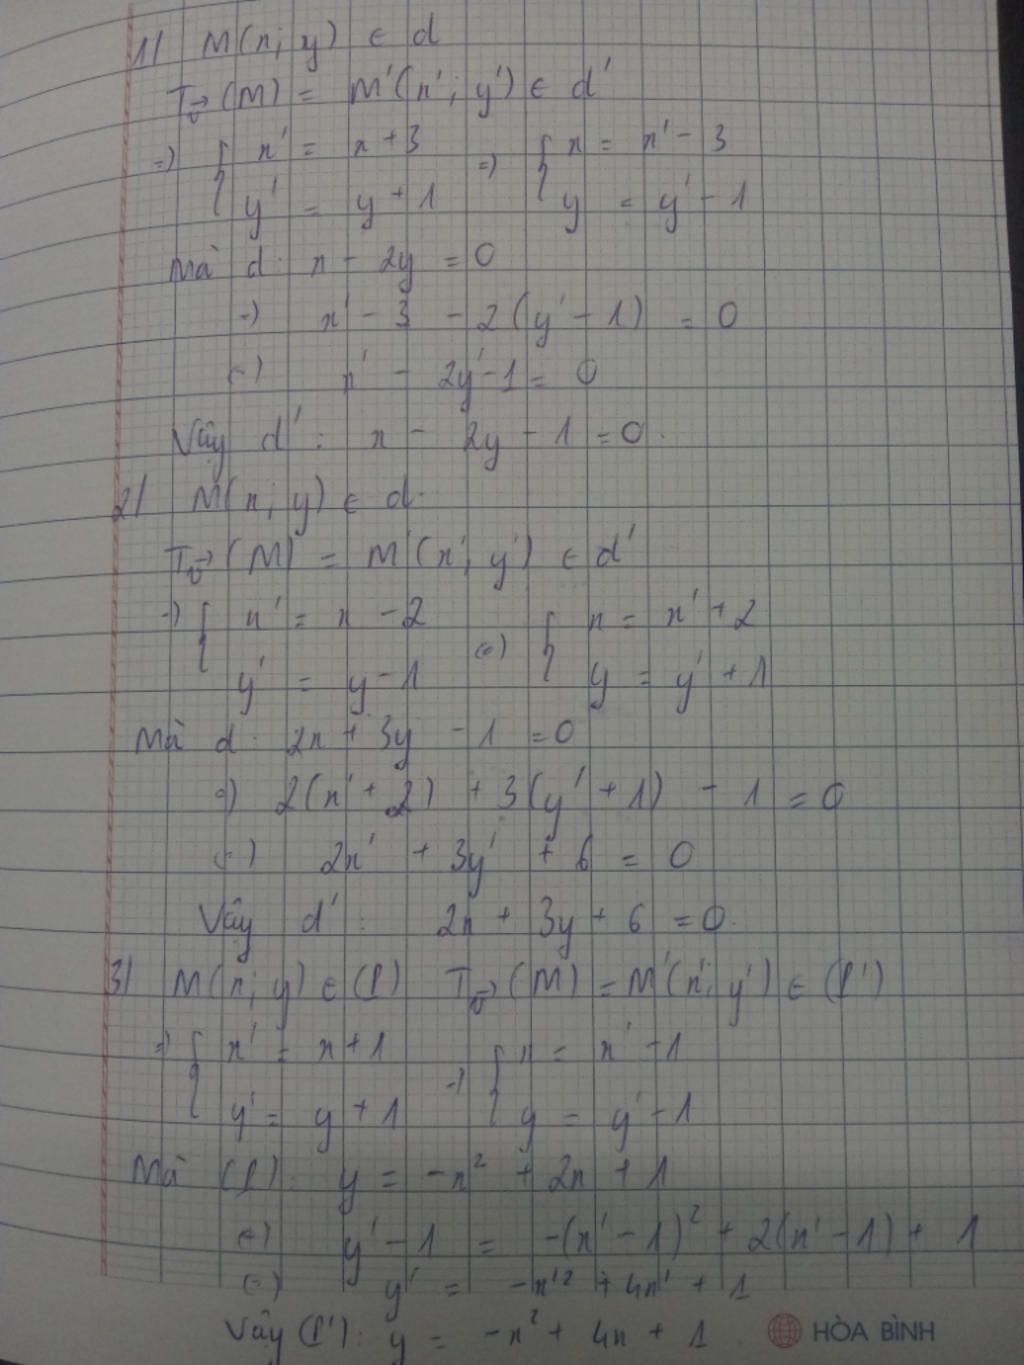 1) M(x; y) ∈ d
T_v→ (M) = M'(x'; y') ∈ d'
=> { x' = x + 3 => { x = x' - 3
y' = y + 1 y = y' - 1
Mà d: x - 2y = 0
=> x' - 3 - 2(y' - 1) = 0
(=) x' - 2y' - 1 = 0
Vậy d': x - 2y - 1 = 0.
2) M(x; y) ∈ d.
T_v→ (M) = M'(x'; y') ∈ d'
=> { x' = x - 2 (=) { x = x' + 2
y' = y - 1 y = y' + 1
Mà d: 2x + 3y - 1 = 0
=) 2(x' + 2) + 3(y' + 1) - 1 = 0
(=) 2x' + 3y' + 6 = 0
Vậy d': 2x + 3y + 6 = 0.
3) M(x; y) ∈ (P) T_v→ (M) = M'(x'; y') ∈ (P')
=> { x' = x + 1 => { x = x' - 1
y' = y + 1 y = y' - 1
Mà (P): y = -x² + 2x + 1
(=) y' - 1 = -(x' - 1)² + 2(x' - 1) + 1
(=) y' = -x'² + 4x' + 1
Vậy (P'): y = -x² + 4x + 1
HÒA BÌNH